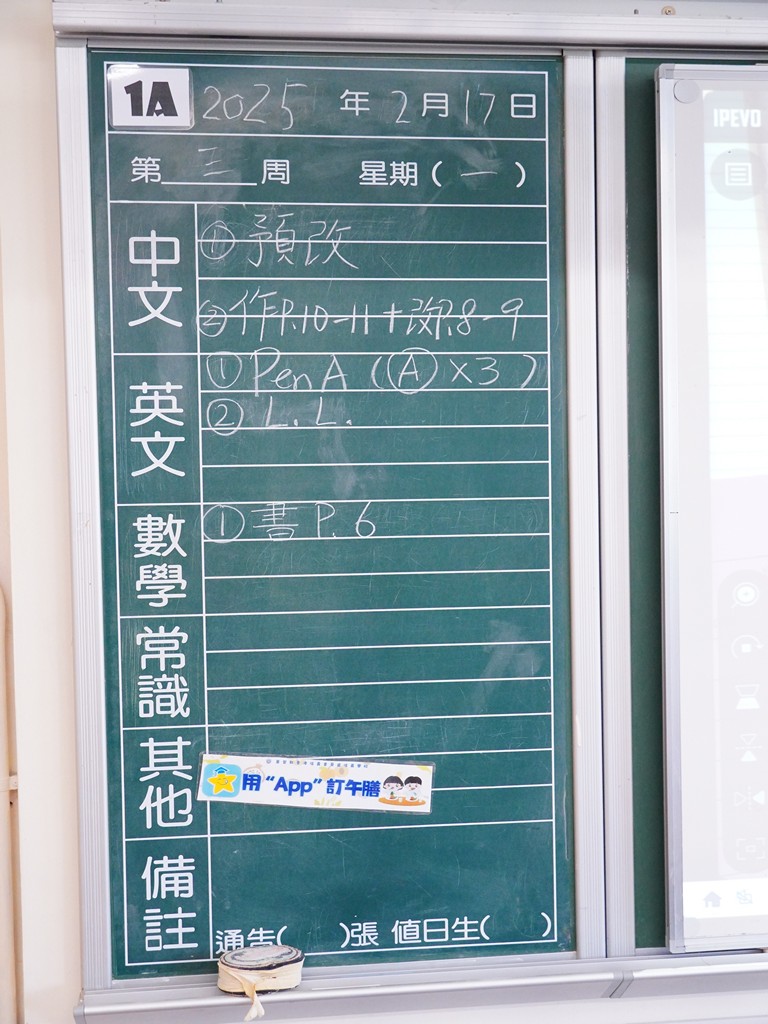 1A 2025 年 2 月 17 日
第 三 周 星期 ( 一 )
中文
① 預改
② 作P.10-11+改P.8-9
英文
① Pen A (Ⓐ x3)
② L.L.
數學
① 書 P.6
常識
其他
用“App”訂午膳
備註
通告( )張 值日生( )
IPEVO